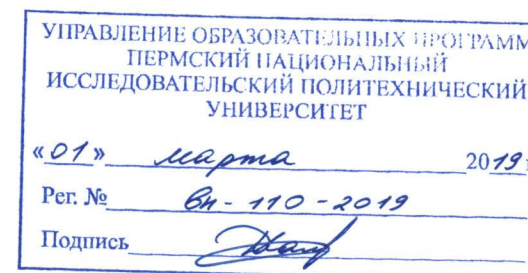 УПРАВЛЕНИЕ ОБРАЗОВАТЕЛЬНЫХ ПРОГРАММ
ПЕРМСКИЙ НАЦИОНАЛЬНЫЙ
ИССЛЕДОВАТЕЛЬСКИЙ ПОЛИТЕХНИЧЕСКИЙ
УНИВЕРСИТЕТ
«01» марта 2019 г
Рег. № вн-110-2019
Подпись